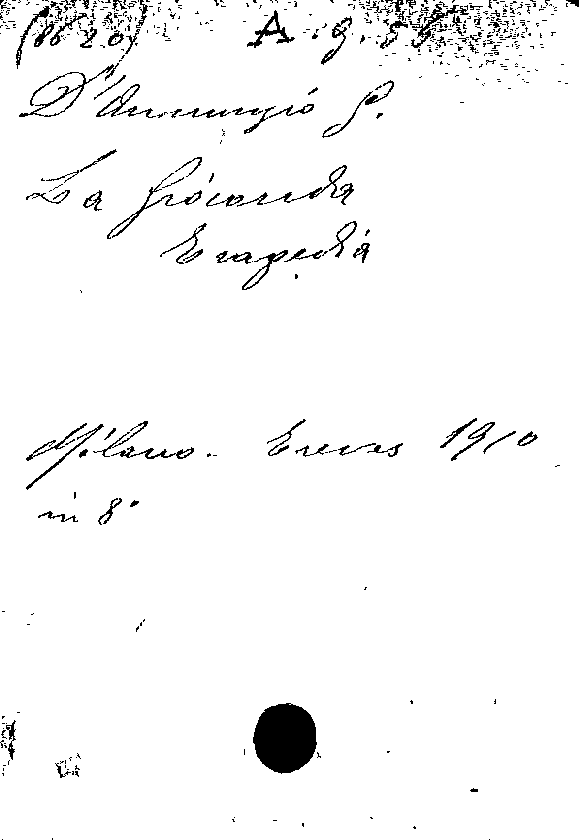 (8620) A. 9. 56
D'Annunzio G.
La Gioconda
Tragedia
Milano. Treves 1910
in 8°